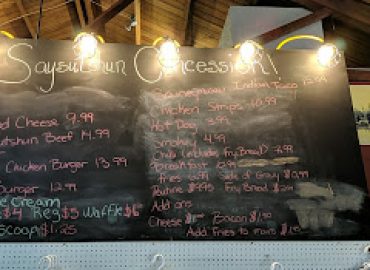 Saysutshun Concession!
d Cheese 9.99
utshun Beef 14.99
Chicken Burger 13.99
urger 12.99
ce Cream
$4 Reg $5 Waffle $6
Scoop $1.25
Indian Taco 15.99
Chicken Strips 10.99
Hot Dog 3.99
Smokey 4.99
Chili (includes Fry Bread) 7.99
Fries 5.99 Side of Gravy $0.99
Poutine $9.95 Fry Bread
Add ons
Cheese Bacon $1.50
Add Fries to mains